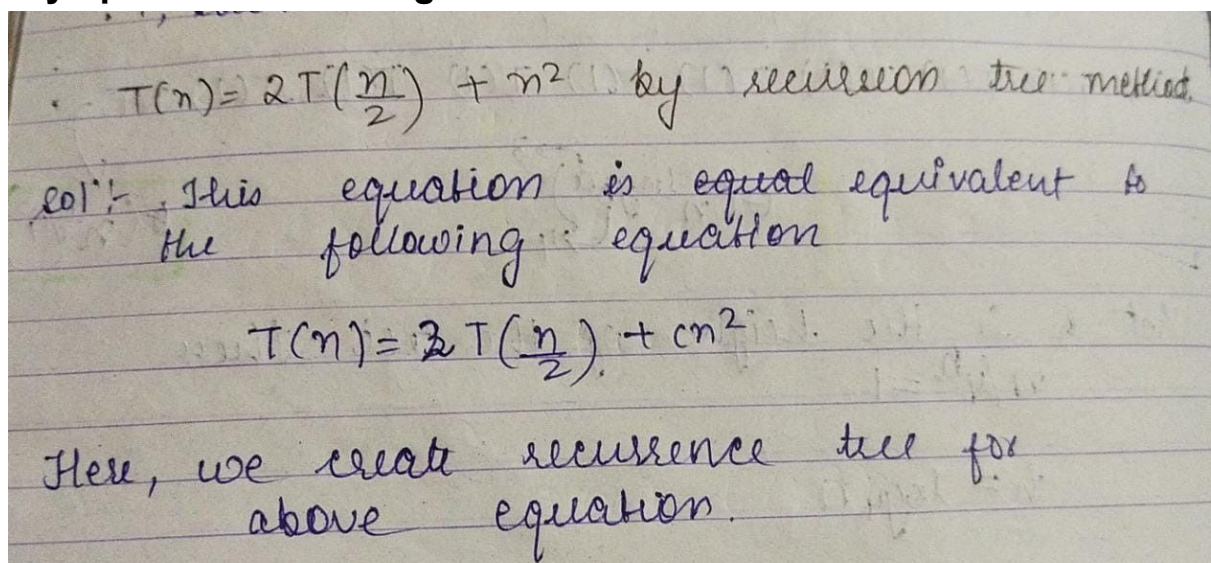 T(n) = 2T(n/2) + n² by recursion tree method.
sol':- This equation is equal equivalent to
the following equation
T(n) = 2T(n/2) + cn²
Here, we create recurrence tree for
above equation.